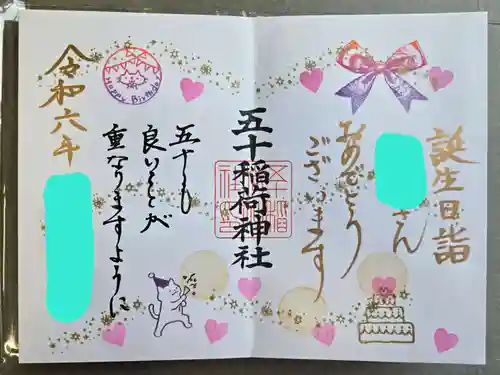 誕生日詣
さん
おめでとう
ございます
五十稲荷神社
五十も
良いことが
重なりますように
令和六年
Happy Birthday